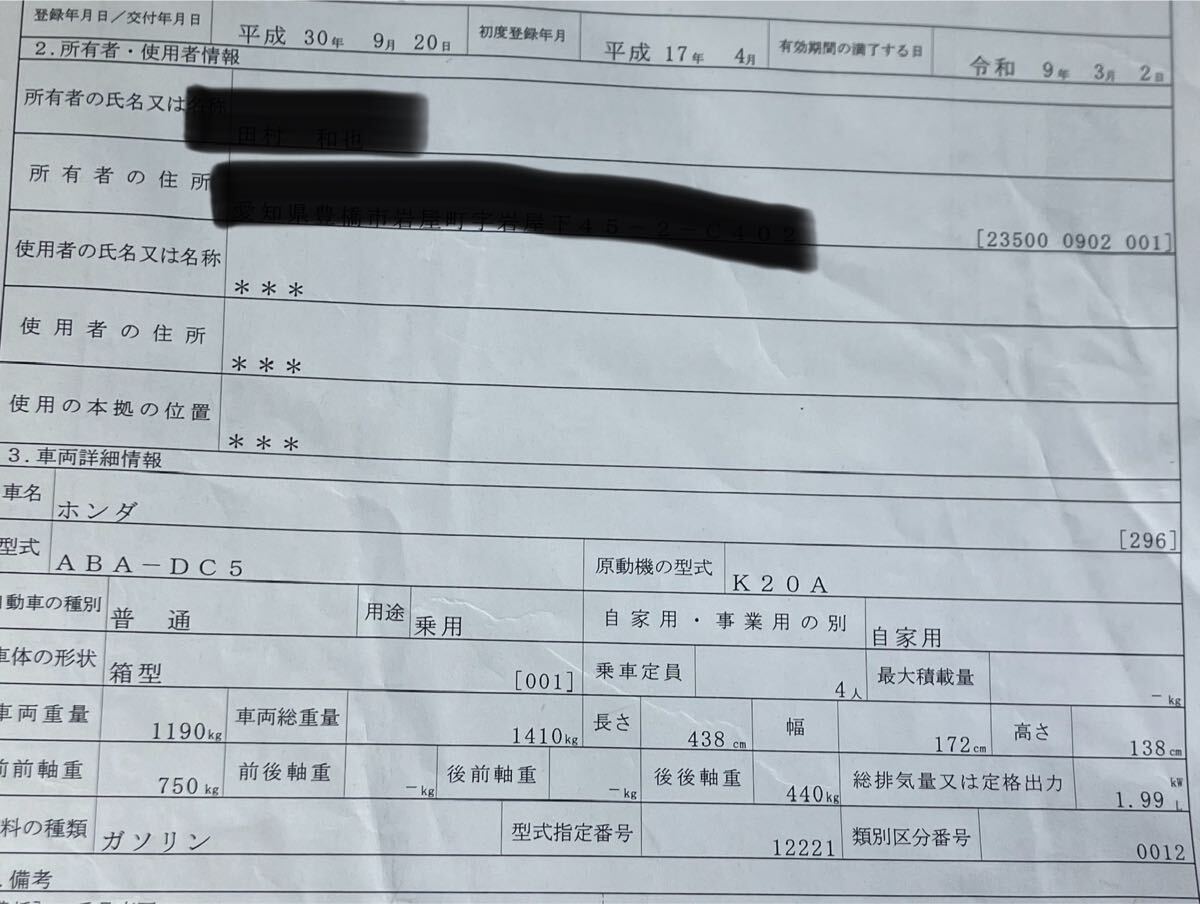 登録年月日/交付年月日 平成 30年 9月 20日 初度登録年月 平成 17年 4月 有効期間の満了する日 令和 9年 3月 2日
2.所有者・使用者情報
所有者の氏名又は名称
所有者の住所
[23500 0902 001]
使用者の氏名又は名称 ***
使用者の住所 ***
使用の本拠の位置 ***
3.車両詳細情報
車名 ホンダ [296]
型式 ABA-DC5 原動機の型式 K20A
動車の種別 普通 用途 乗用 自家用・事業用の別 自家用
車体の形状 箱型 [001] 乗車定員 4人 最大積載量 -kg
車両重量 1190kg 車両総重量 1410kg 長さ 438cm 幅 172cm 高さ 138cm
前前軸重 750kg 前後軸重 -kg 後前軸重 -kg 後後軸重 440kg 総排気量又は定格出力 1.99 kW L
料の種類 ガソリン 型式指定番号 12221 類別区分番号 0012
.備考